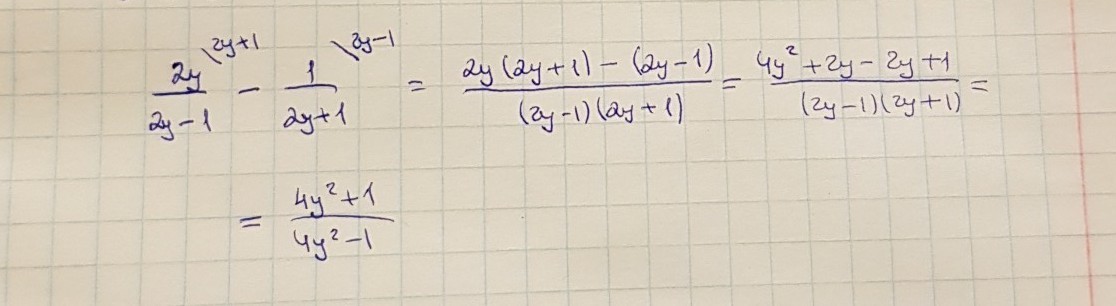 2y/(2y-1) \2y+1 - 1/(2y+1) \2y-1 = (2y(2y+1)-(2y-1))/((2y-1)(2y+1)) = (4y²+2y-2y+1)/((2y-1)(2y+1)) =
= (4y²+1)/(4y²-1)